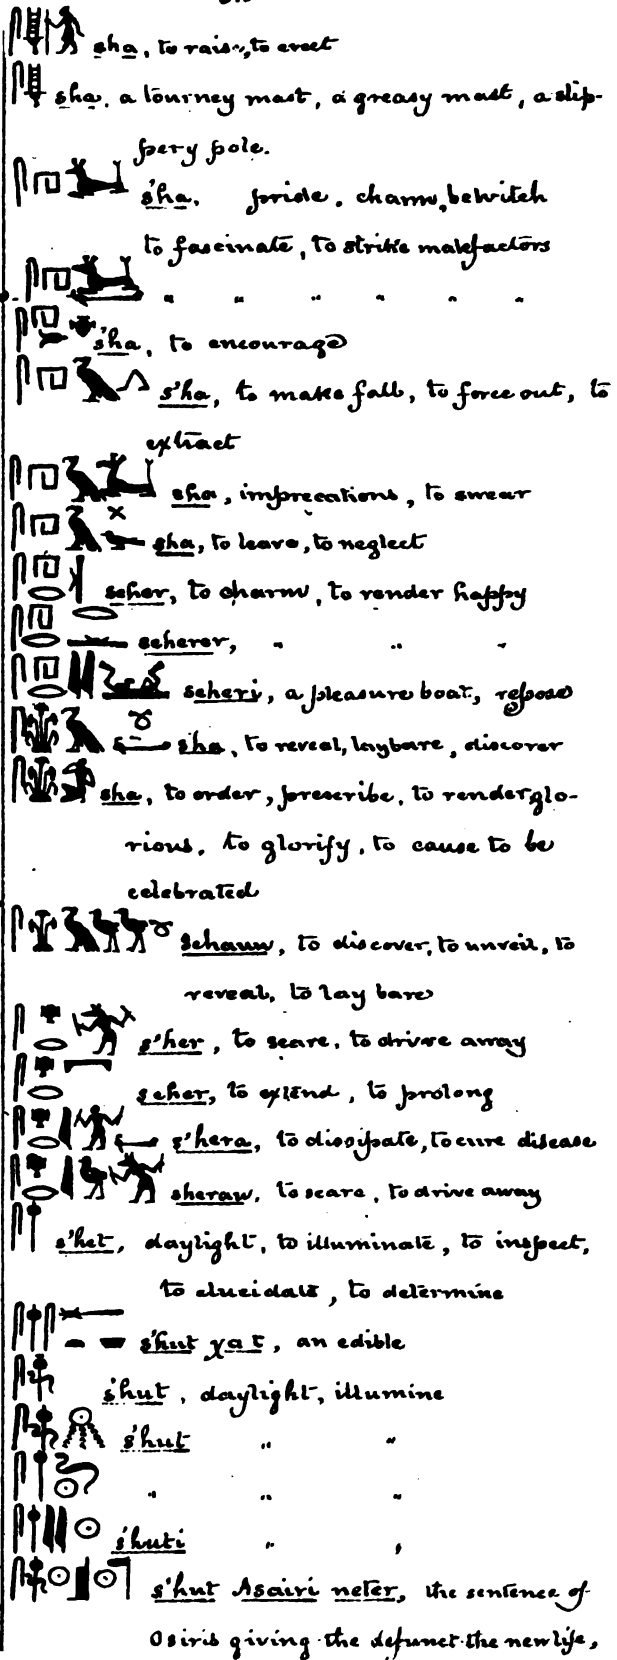 sha, to raise, to erect
sha, a tourney mast, a greasy mast, a slip-
pery pole.
s'ha, pride, charm, bewitch
to fascinate, to strike malefactors
" " " " " "
s'ha, to encourage
s'ha, to make fall, to force out, to
extract
sha, imprecations, to swear
sha, to leave, to neglect
seher, to charm, to render happy
seherer, " " "
seheri, a pleasure boat, repose
sha, to reveal, lay bare, discover
sha, to order, prescribe, to render glo-
rious, to glorify, to cause to be
celebrated
sehauu, to discover, to unveil, to
reveal, to lay bare
s'her, to scare, to drive away
seher, to extend, to prolong
s'hera, to dissipate, to cure disease
sherau, to scare, to drive away
s'het, daylight, to illuminate, to inspect,
to elucidate, to determine
s'hut χat, an edible
s'hut, daylight, illumine
s'hut " "
" " "
s'huti " "
s'hut Asairi neter, the sentence of
Osiris giving the defunct the new life,